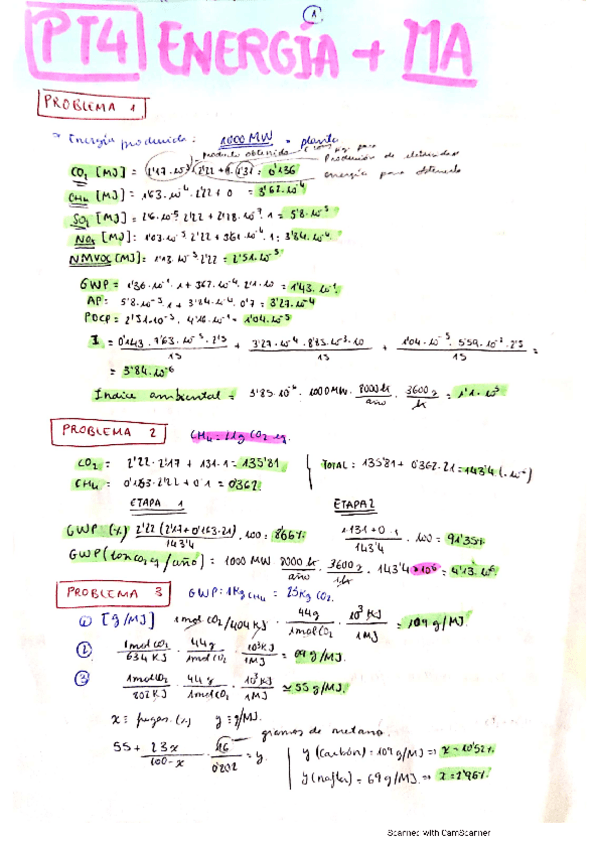 1
PT4 ENERGÍA + MA
PROBLEMA 1
Energía producida: 1000 MW = planta
producto obtenido
Producción de electricidad
energía para obtenerlo
CO2 [MJ] = 1'17·10 2'22 + 0'131 = 0'136
CH4 [MJ] = 1'63·10^-4 · 2'22 + 0 = 3'62·10^-4
SO2 [MJ] = 2'6·10^-5 2'22 + 2'18·10^-7 · 1 = 5'8·10^-5
NOx [MJ]: 1'03·10^-5 2'22 + 3'61·10^-4 · 1 = 3'84·10^-4
NMVOC [MJ]: 1'13·10^-5 2'22 = 2'51·10^-5
GWP = 1'36·10^-1 · 1 + 3'67·10^-4 · 21 · 10 = 1'43·10^-1
AP: 5'8·10^-5 · 1 + 3'84·10^-4 · 0'7 = 3'27·10^-4
POCP = 2'51·10^-5 · 4'16·10^-1 = 1'04·10^-5
I = 0'143 · 7'63·10^-5 · 2'5 / 15 + 3'27·10^-4 · 8'85·10^-3 · 10 / 15 + 1'04·10^-5 · 5'59·10 · 2'5 / 15 =
= 3'84·10^-6
Índice ambiental = 3'85·10^-6 · 1000MW · 8000h/año · 3600s/h = 1'1·10^5
PROBLEMA 2 CH4 = 21g CO2 eq.
CO2 = 2'22·2'17 + 131·1 = 135'81
CH4 = 0'163·2'22 + 0·1 = 0'362
TOTAL: 135'81 + 0'362·21 = 143'4
ETAPA 1 ETAPA 2
GWP (%) 2'22 (2'17+0'163·21) / 143'4 · 100 = 8'66% 131+0·1 / 143'4 · 100 = 91'35%
GWP (ton CO2 eq /año) = 1000 MW 8000 h/año · 3600 s/h · 143'4 · 10^6 = 4'13·10^6
PROBLEMA 3 GWP: 1Kg CH4 = 23Kg CO2.
① [g/MJ] 1mol CO2/404 KJ · 44g/1mol CO2 · 10^3 KJ/1MJ = 109 g/MJ.
② 1mol CO2/634 KJ · 44g/1mol CO2 · 10^3 KJ/1MJ = 69 g/MJ.
③ 1mol CO2/802 KJ · 44g/1mol CO2 · 10^3 KJ/1MJ ≃ 55 g/MJ.
x = fugas (%) y = g/MJ.
gramos de metano.
55 + 23x/100-x · 16/0'802 = y.
y (carbón) = 109 g/MJ ⇒ x = 10'52%
y (nafta) = 69 g/MJ ⇒ x = 2'96%
Scanned with CamScanner